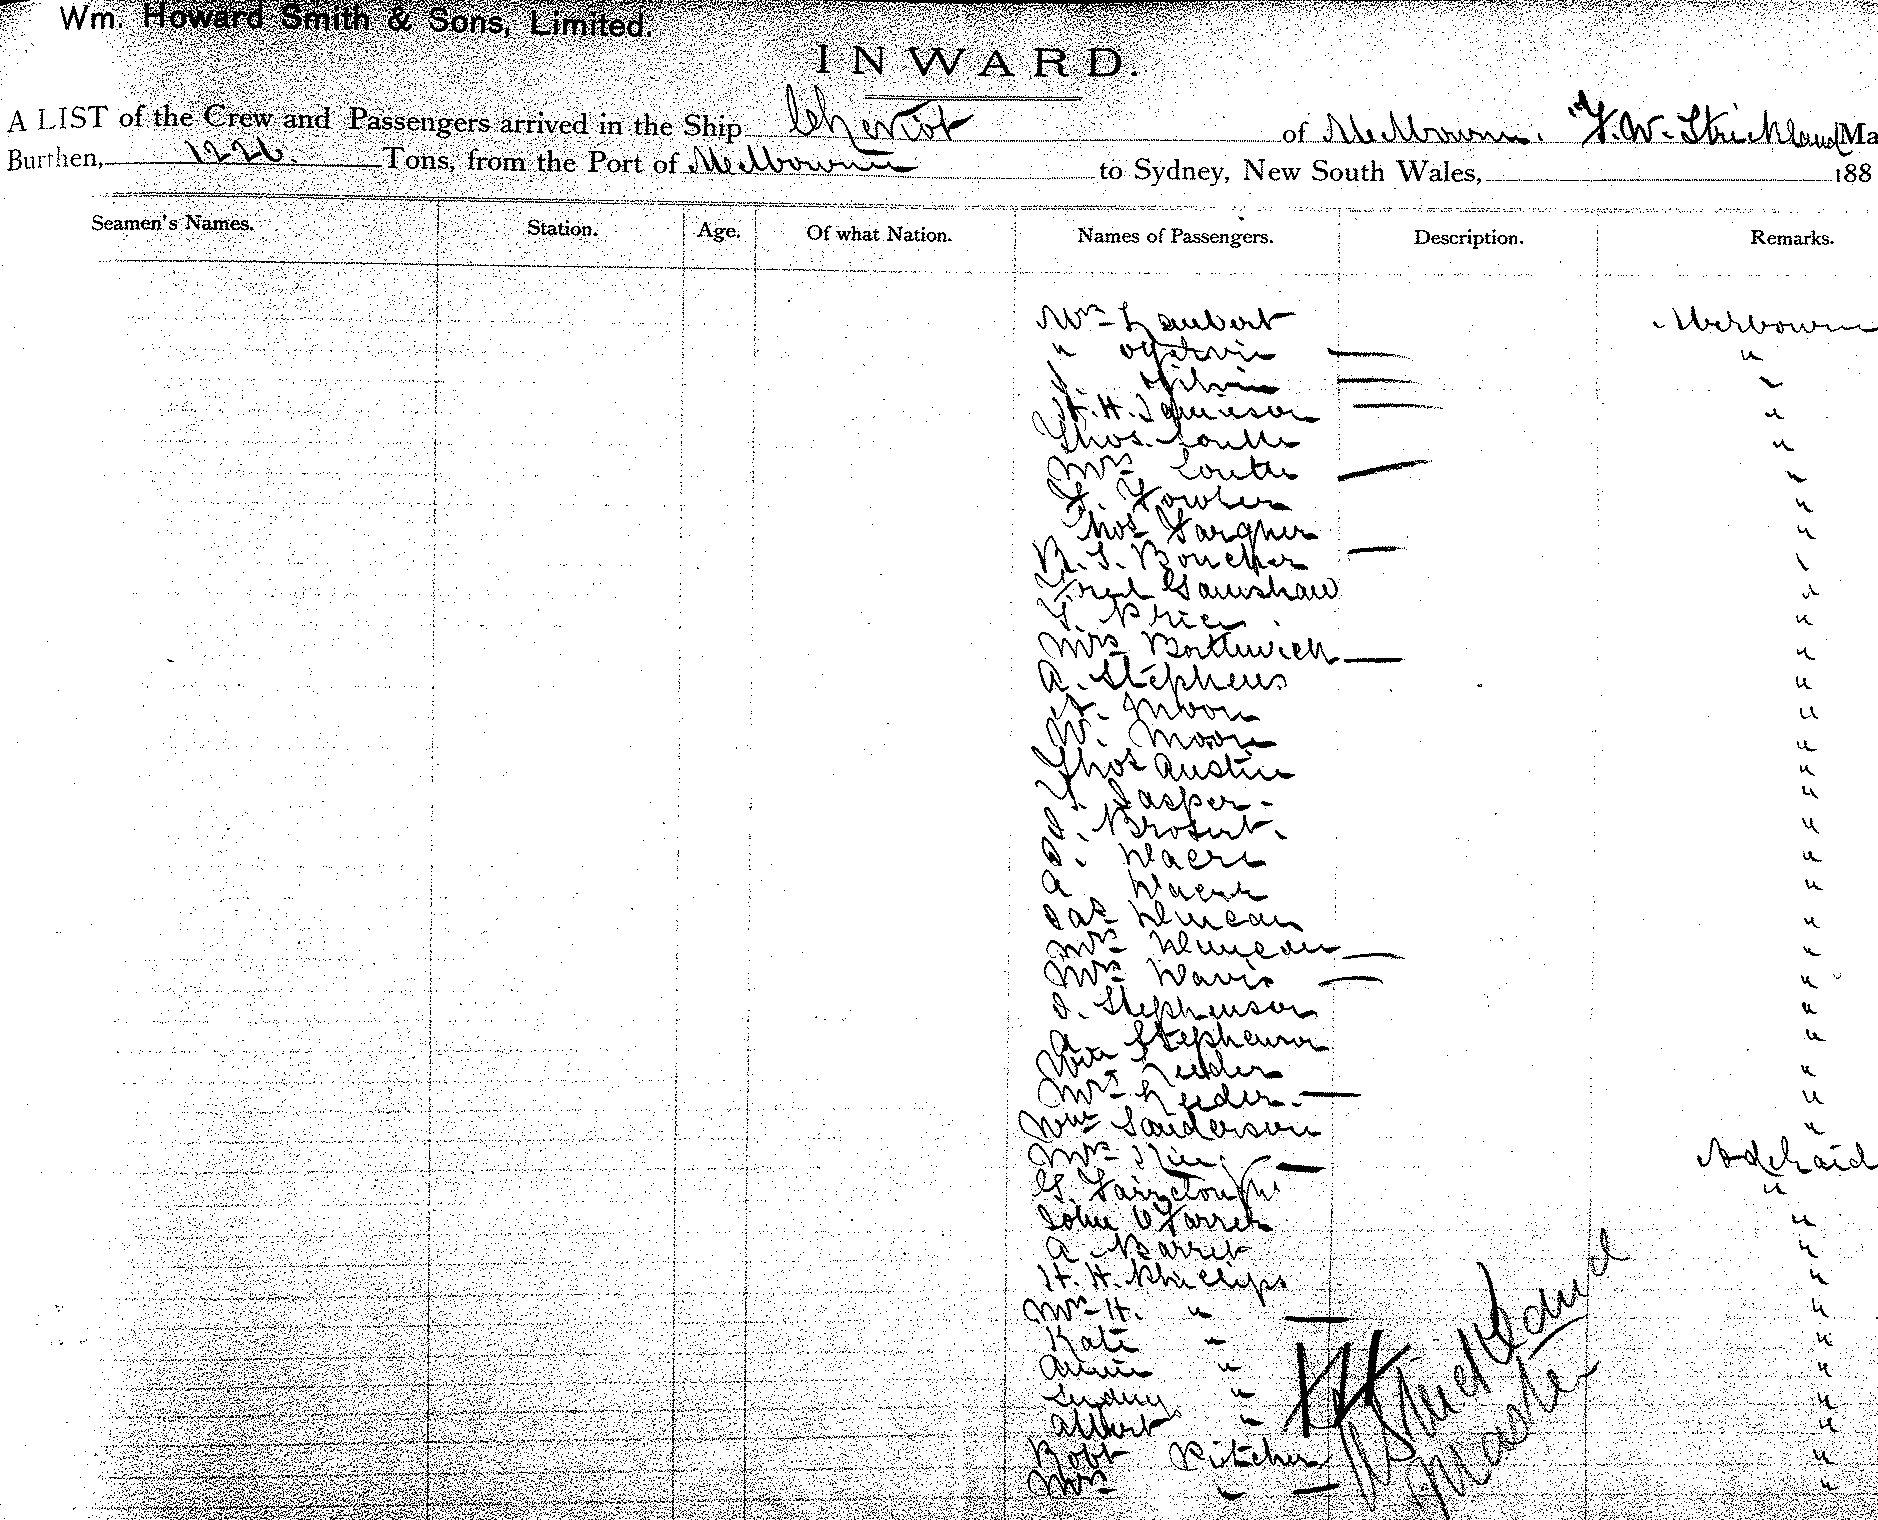 Wm. Howard Smith & Sons, Limited.
INWARD.
A LIST of the Crew and Passengers arrived in the Ship Cheviot of Melbourne. F. W. Strickland Ma
Burthen, 1226. Tons, from the Port of Melbourne to Sydney, New South Wales, 188
Seamen's Names. Station. Age. Of what Nation. Names of Passengers. Description. Remarks.
Mrs Lambert Melbourne
" Ogilvie "
J. Ogilvie "
H. H. Jamieson "
Thos. Coutts "
Mrs Coutts "
F. Fowler "
Thos "
R. J. Boucher "
Fred "
T. Price "
Mrs Borthwick "
A. Stephens "
A. Moore "
W. Moore "
Thos Austin "
Jasper "
J. "
J. Dacre "
A Dacre "
Jas Duncan "
Mrs Duncan "
Mrs Davis "
J. Stephenson "
A Stephenson "
Wm Leeder "
Mrs Leeder. "
Wm Sanderson "
Mrs Adelaid
G. Fairclough "
John O'Farrell "
A. Barret "
H. H. Phillips "
Mrs H. " "
Kate " "
Annie " "
Sydney " "
Albert " "
Robt Pitcher "
Mrs " "
Strickland
Master